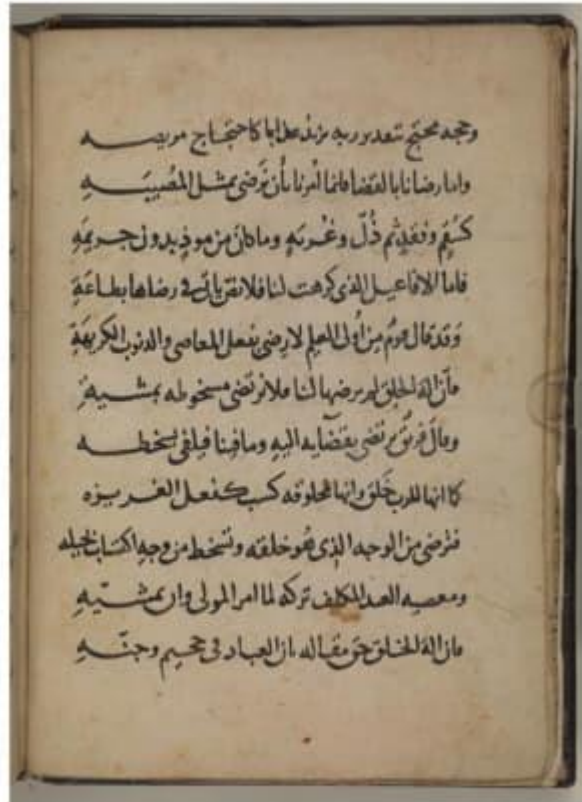 وحجه محتج بتقدير ربه تزيد عذابا كاحتجاج مريضه
واما رضانا بالقضا فانما امرنا بأن نرضى بمثل المصيبه
كسقم وفقد ثم ذل وغربه وما كان من موذ بدون جريمه
فاما الافاعيل الذى كرهت لنا فلا نص ياتى في رضاها بطاعة
وقد قال قوم من أولى العلم لا رضى بفعل المعاصى والذنوب الكريهة
فان اله الخلق لم يرضها لنا فلا نرتضى مسخوطه بمشيه
وقال فريق نرتضى بقضايه اليه وما فينا فيلقى بسخطه
كما انها للرب خلق وانها لمخلوقه كسب كفعل الغريزه
فنرضى من الوجه الذى هو خلقه ونسخط من وجه اكتساب بحيله
ومعصيه العبد المكلف تركه لما امر المولى وان بمشيه
فان اله الخلق حق مقاله بان العباد فى جحيم وجنه